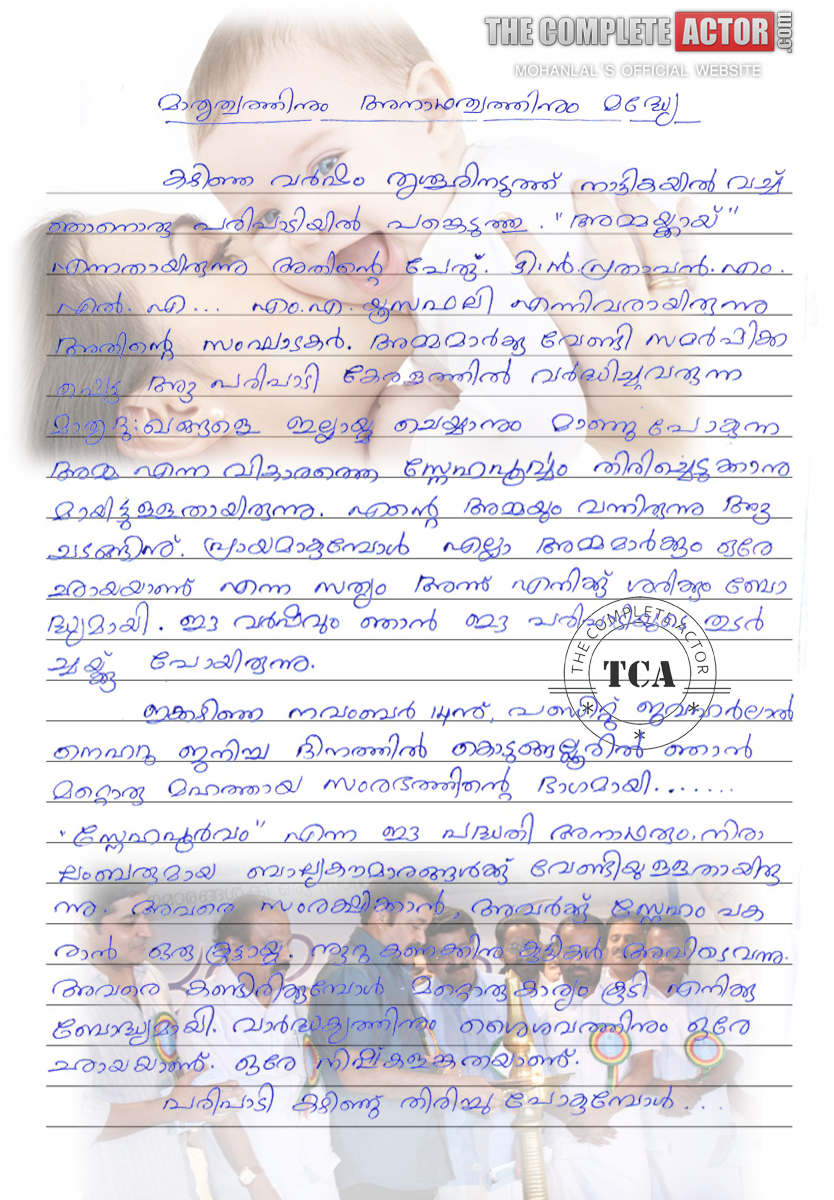 THE COMPLETE ACTOR.com
MOHANLAL'S OFFICIAL WEBSITE
മാതൃത്വത്തിനും അനാഥത്വത്തിനും മദ്ധ്യേ
കഴിഞ്ഞ വർഷം തൃശ്ശൂരിനടുത്ത് നാട്ടികയിൽ വച്ച്
ഞാനൊരു പരിപാടിയിൽ പങ്കെടുത്തു. "അമ്മയ്ക്കായ്"
എന്നതായിരുന്നു അതിന്റെ പേര്. ടി.എൻ.പ്രതാപൻ.എം.
എൽ.എ... എം.എ.യൂസഫലി എന്നിവരായിരുന്നു
അതിന്റെ സംഘാടകർ. അമ്മമാർക്കു വേണ്ടി സമർപ്പിക്ക
പ്പെട്ട ആ പരിപാടി കേരളത്തിൽ വർദ്ധിച്ചുവരുന്ന
മാതൃദു:ഖങ്ങളെ ഇല്ലായ്മ ചെയ്യാനും മാഞ്ഞു പോകുന്ന
അമ്മ എന്ന വികാരത്തെ സ്നേഹപൂർവ്വം തിരിച്ചെടുക്കാനു
മായിട്ടുള്ളതായിരുന്നു. എന്റെ അമ്മയും വന്നിരുന്നു ആ
ചടങ്ങിന്. പ്രായമാകുമ്പോൾ എല്ലാ അമ്മമാർക്കും ഒരേ
ഛായയാണ് എന്ന സത്യം അന്ന് എനിക്ക് ശരിക്കും ബോ
ദ്ധ്യമായി. ഈ വർഷവും ഞാൻ ഈ പരിപാടിയുടെ തുടർ
ച്ചയ്ക്കു പോയിരുന്നു.
THE COMPLETE ACTOR
TCA
ഇക്കഴിഞ്ഞ നവംബർ 14ന്, പണ്ഡിറ്റ് ജവഹർലാൽ
നെഹ്റു ജനിച്ച ദിനത്തിൽ കൊടുങ്ങല്ലൂരിൽ ഞാൻ
മറ്റൊരു മഹത്തായ സംരഭത്തിന്റെ ഭാഗമായി.......
"സ്നേഹപൂർവം" എന്ന ഈ പദ്ധതി അനാഥരും, നിരാ
ലംബരുമായ ബാല്യകൗമാരങ്ങൾക്ക് വേണ്ടിയുള്ളതായിരു
ന്നു. അവരെ സംരക്ഷിക്കാൻ, അവർക്ക് സ്നേഹം പക
രാൻ ഒരു കൂട്ടായ്മ. നൂറു കണക്കിനു കുട്ടികൾ അവിടെവന്നു.
അവരെ കണ്ടിരിക്കുമ്പോൾ മറ്റൊരുകാര്യം കൂടി എനിക്കു
ബോദ്ധ്യമായി. വാർദ്ധക്യത്തിനും ശൈശവത്തിനും ഒരേ
ഛായയാണ്. ഒരേ നിഷ്കളങ്കതയാണ്.
പരിപാടി കഴിഞ്ഞു തിരിച്ചു പോകുമ്പോൾ...